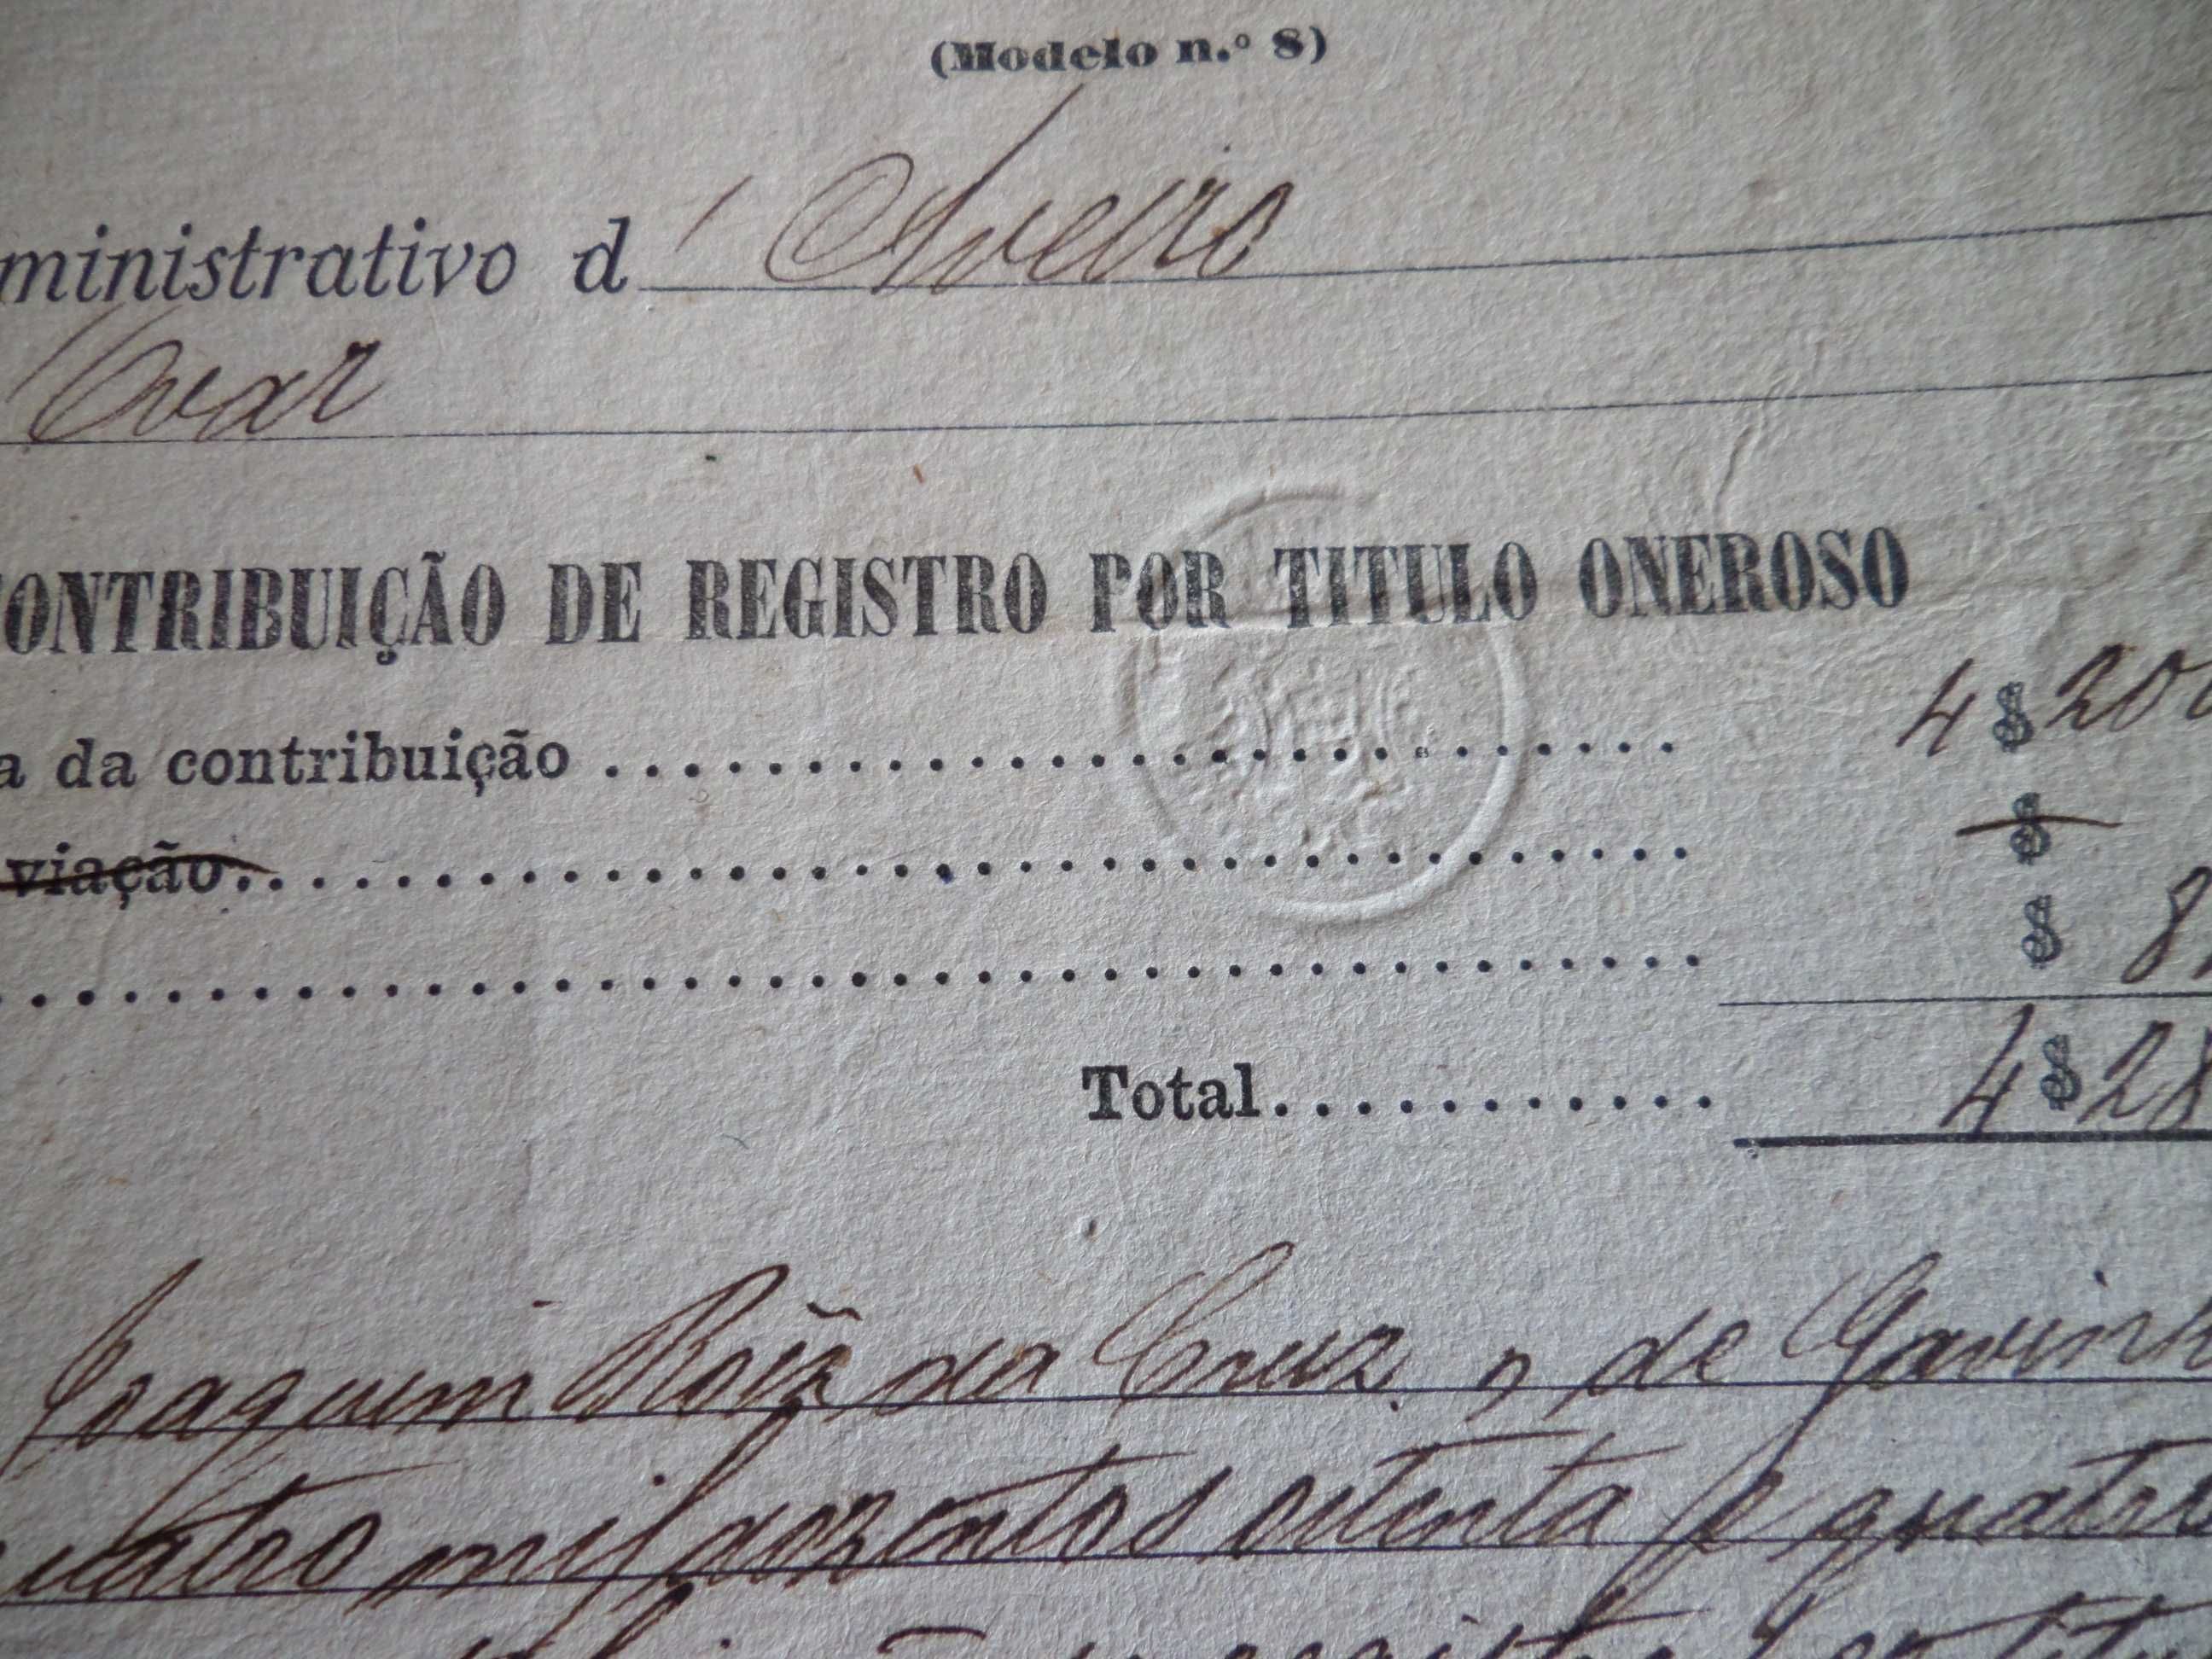 (Modelo n.º 8)
ministrativo d'Aveiro
Ovar
CONTRIBUIÇÃO DE REGISTRO POR TITULO ONEROSO
a da contribuição .......................... 4$200
viação.............................. $
.............................. $ 8
Total............ 4$28
Joaquim Roiz da Cruz, de Gavinh
uatro mil dozentos oitenta e quatro
registro